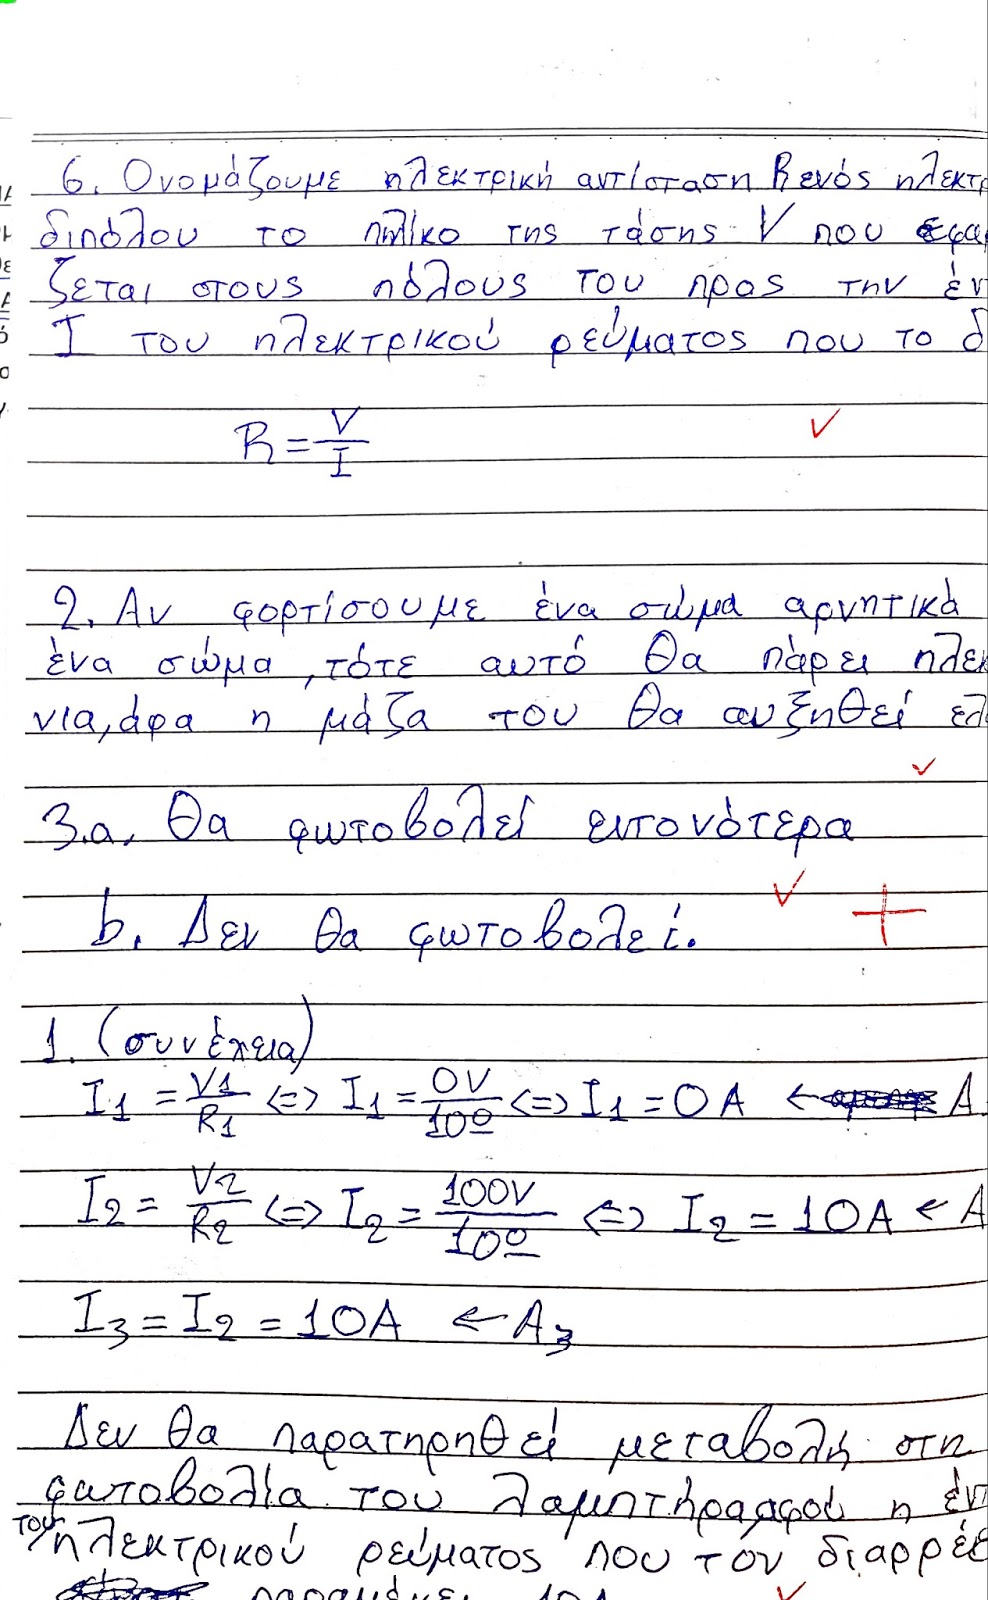 6. Ονομάζουμε ηλεκτρική αντίσταση R ενός ηλεκτρ
διπόλου το πηλίκο της τάσης V που εφαρ
ζεται στους πόλους του προς την έν
I του ηλεκτρικού ρεύματος που το δ
R = V/I
2. Αν φορτίσουμε ένα σώμα αρνητικά
ένα σώμα, τότε αυτό θα πάρει ηλεκ
νια, άρα η μάζα του θα αυξηθεί ελ
3.a. Θα φωτοβολεί εντονότερα
b. Δεν θα φωτοβολεί.
1. (συνέχεια)
I1 = V1/R1 <=> I1 = 0V/10Ω <=> I1 = 0A ← A
I2 = V2/R2 <=> I2 = 100V/10Ω <=> I2 = 10A ← A
I3 = I2 = 10A ← A3
Δεν θα παρατηρηθεί μεταβολή στη
φωτοβολία του λαμπτήρα, αφού η έν
του ηλεκτρικού ρεύματος που τον διαρρέε
παραμένει 10A